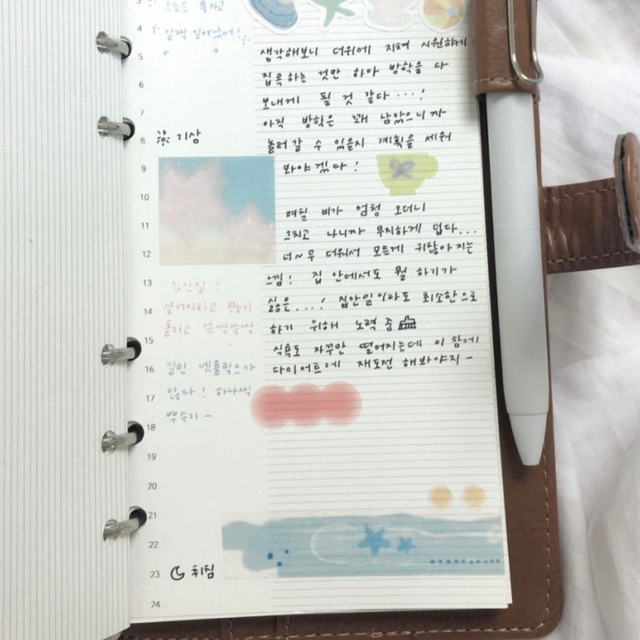 3
오늘은 푹자고
4 일찍 일어났어!
5
6
7
8 기상
9
10
11
12
13 집안일!
14 설거지하고 청소기
15 돌리고 슥싹슥싹
16 밀린 넷플릭스가
17 많다! 하나씩
18 뿌수기 ~
20
21
22
23 취침
24
생각해보니 더위에 지쳐 시원하게
집콕하는 것만 하다 방학을 다
보내게 될 것 같다 ...!
아직 방학은 꽤 남았으니까
놀러갈 수 있을지 계획을 세워
봐야겠다!
며칠 비가 엄청 오더니
그치고 나니까 무지하게 덥다...
너~무 더워서 모든게 귀찮아 지는
느낌! 집 안에서도 뭘 하기가
싫은...! 집안일이라도 최소한으로
하기 위해 노력 중
식욕도 자꾸만 떨어지는데 이 참에
다이어트에 재도전 해봐야지~